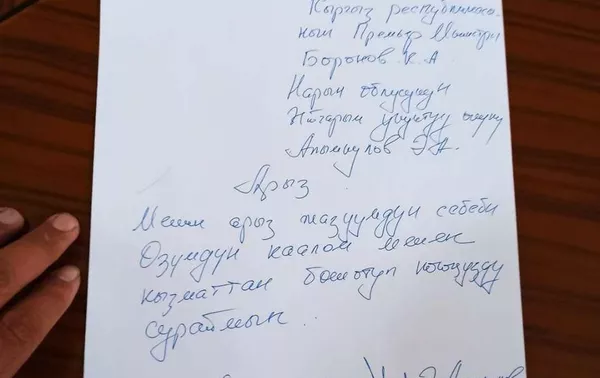 Кыргыз республикасы-
нын Премьер Министри
Боронов К. А
Нарын облусунун
ыйгарым укуктуу өкүлү
Апышулов Э А.
Арыз
Менин арыз жазуумдун себеби
Өзүмдүн каалоом менен
кызматтан бошотуп коюңузду
сураймын